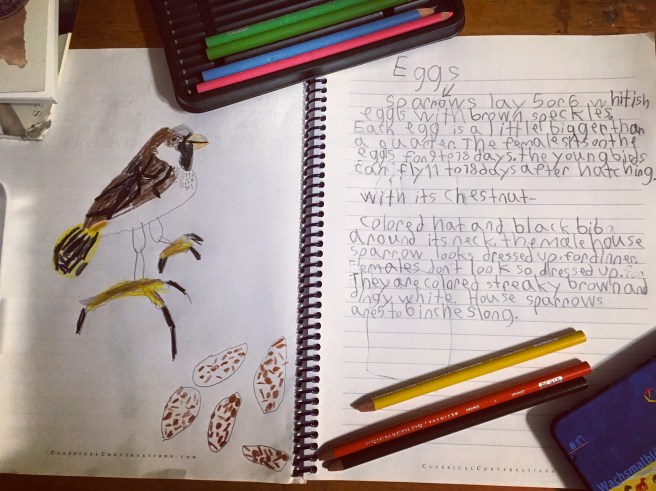 Eggs
sparrows lay 5 or 6 whitish
eggs with brown speckles.
Each egg is a little bigger than
a quarter. The female sits on the
eggs for 9 to 18 days. the young birds
can fly 11 to 18 days after hatching.
with its chestnut-
colored hat and black bib
around its neck, the male house
sparrow looks dressed up for dinner.
Females don't look so dressed up....
They are colored streaky brown and
dingy white. House sparrows
are 5 to 6 inches long.
ClassicalConversations.com
ClassicalConversations
Wachsmalbl